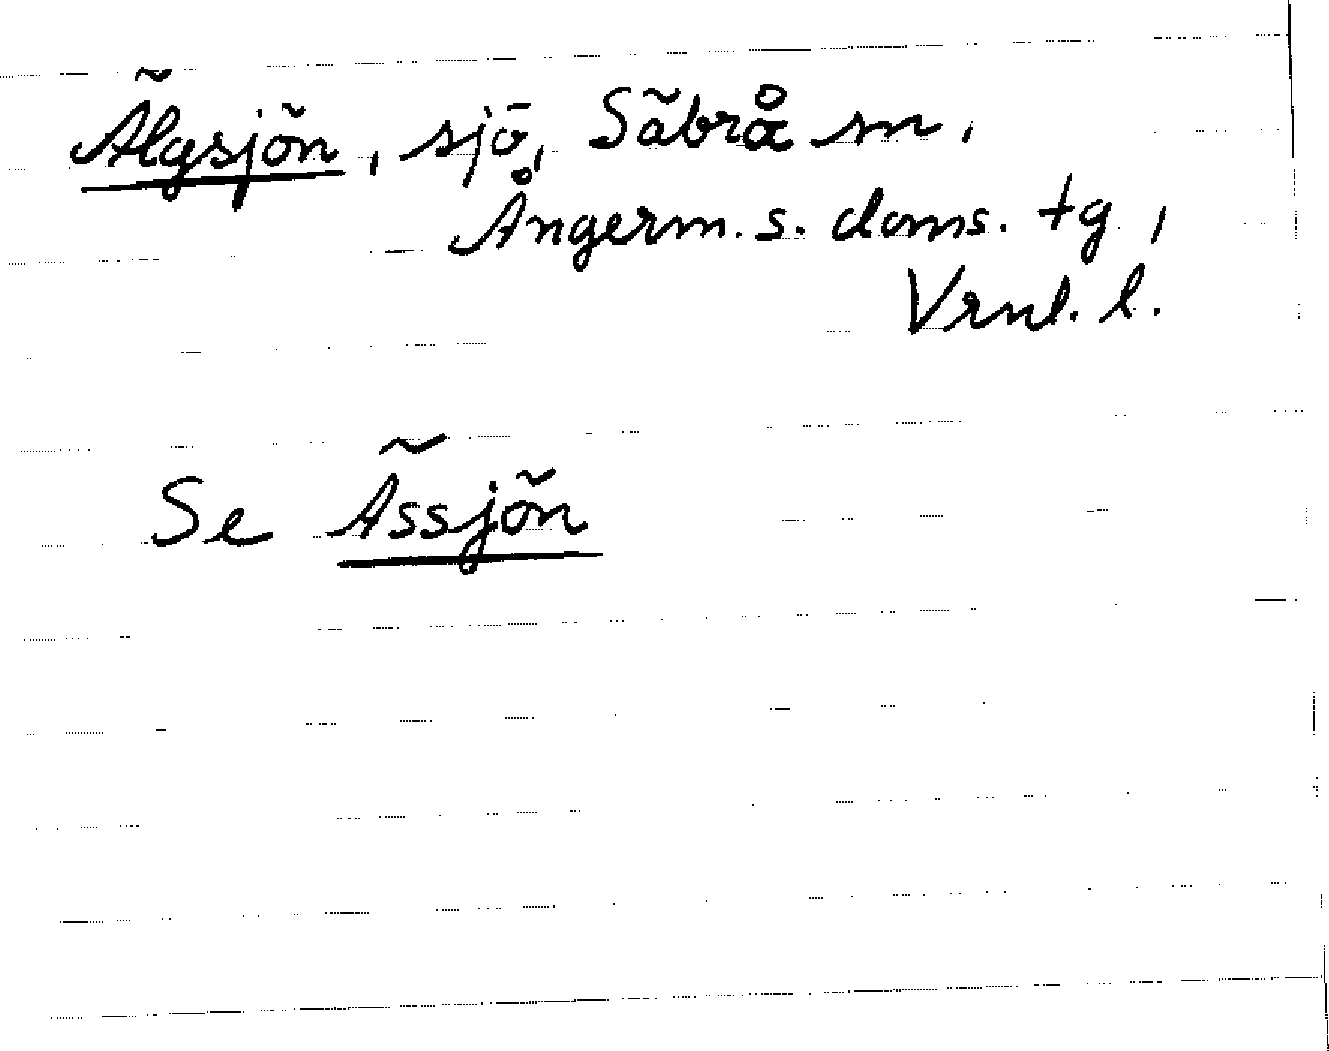 Älgsjön, sjö, Säbrå sn,
Ångerm. s. doms. tg,
Vrnl. l.
Se Ässjön